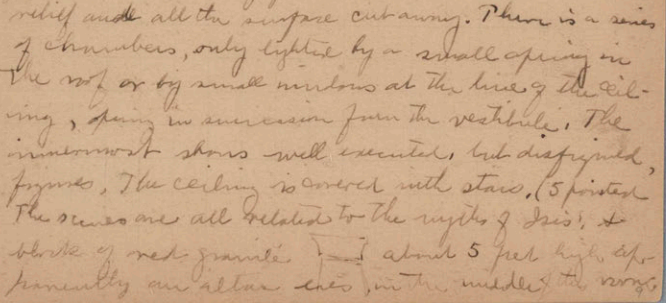 relief and all the surface cut away. There is a series
of chambers, only lighted by a small opening in
the roof or by small windows at the line of the ceil-
ing, opening in succession from the vestibule. The
innermost shows well executed, but disfigured,
figures. The ceiling is covered with stars, (5 pointed
The scenes are all related to the myths of Isis. A
block of red granite about 5 feet high ap-
parently an altar lies, in the middle of the room